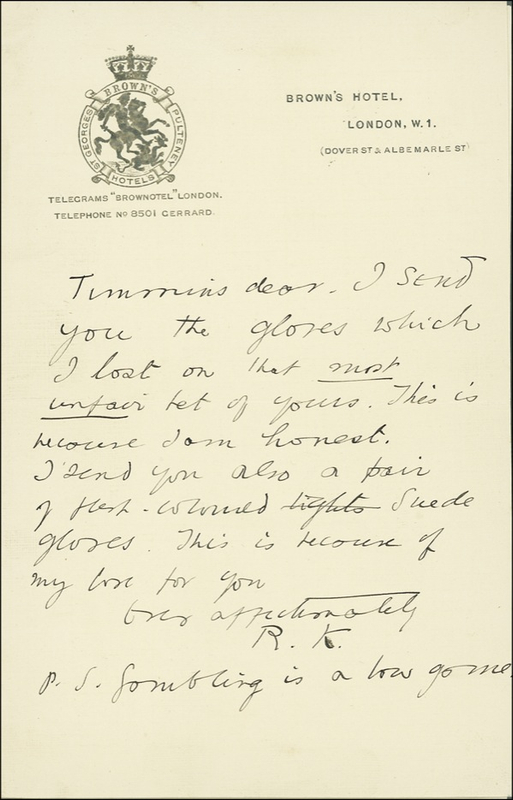 BROWN'S
ST GEORGES
PULTENEY
HOTELS
TELEGRAMS "BROWNOTEL" LONDON.
TELEPHONE No 8501 GERRARD.
BROWN'S HOTEL,
LONDON, W.1.
(DOVER ST & ALBEMARLE ST
Timmins dear. I send
you the gloves which
I lost on that most
unfair bet of yours. This is
because I am honest.
I send you also a pair
of flesh-coloured tights Suede
gloves. This is because of
my love for you
Ever affectionately
R. K.
P. S. Gambling is a low game.